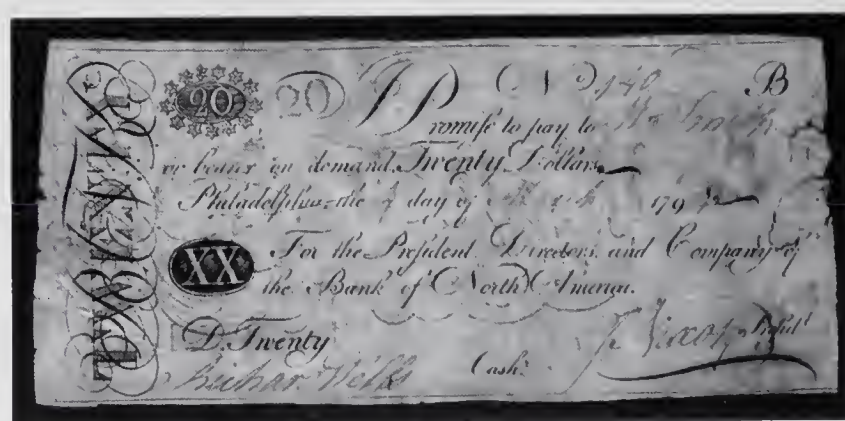 20 20 I No B
Promise to pay to Smith
or bearer on demand Twenty Dollars
Philadelphia the day of March 179
XX For the President, Directors, and Company of
the Bank of North America.
D. Twenty
Richar Wells Cash. J Nixon Presidt